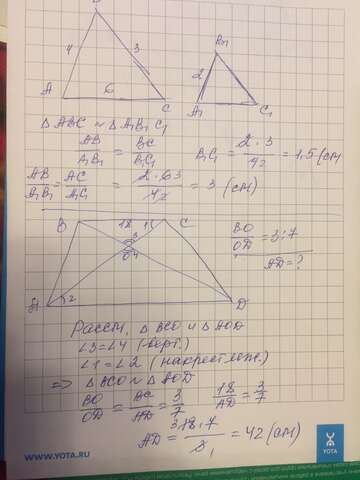 B
4 3 2
A 6 C
B₁
A₁ C₁
Δ ABC ∾ Δ A₁B₁C₁
AB/A₁B₁ = BC/B₁C₁ B₁C₁ = 2·3/4₂ = 1,5 (см
AB/A₁B₁ = AC/A₁C₁ = 2·6³/4₂ = 3 (см)
B 18 1 C
3
O 4
BO/OD = 3:7
AD = ?
A 2 D
Рассм. Δ BCO и Δ AOD
∠3=∠4 (верт.)
∠1=∠2 (накрест леж.)
=> Δ BCO ∾ Δ AOD
BO/OD = BC/AD = 3/7 18/AD = 3/7
AD = 18·7/3₁ = 42 (см)
WWW.YOTA.RU
YOTA
WWW.YOTA.RU